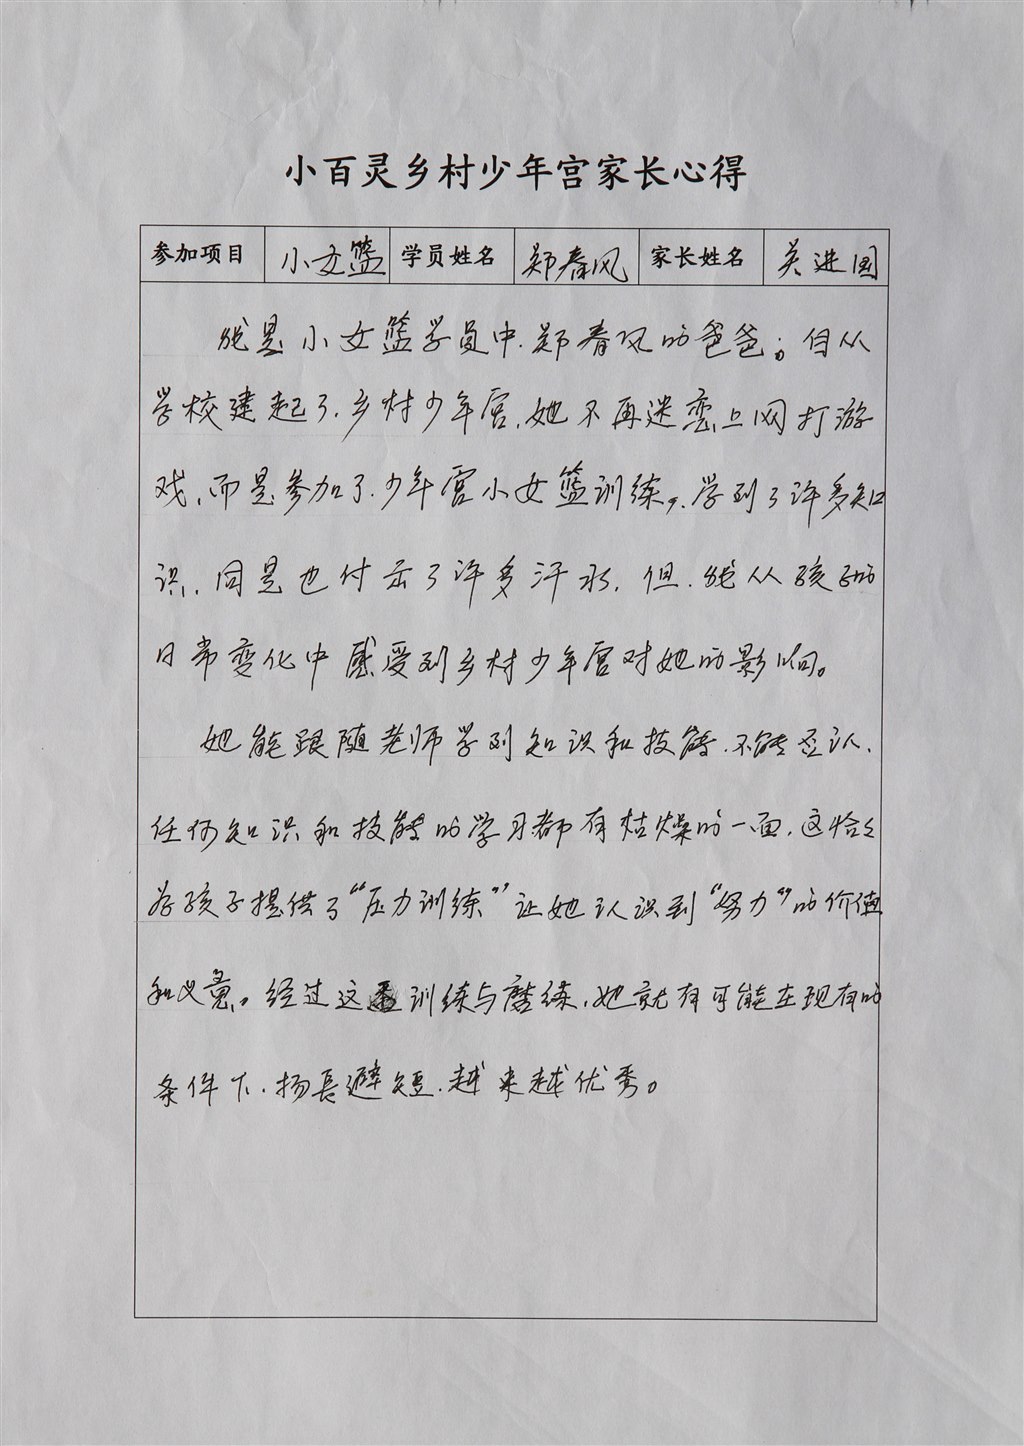 小百灵乡村少年宫家长心得
参加项目 小女篮 学员姓名 郑春风 家长姓名 吴进国
我是小女篮学员中.郑春风的爸爸。自从
学校建起了.乡村少年宫.她不再迷恋上网打游
戏,而是参加了.少年宫小女篮训练,.学到了许多知
识.同是也付出了许多汗水.但.我从孩子的
日常变化中感受到乡村少年宫对她的影响。
她能跟随老师学到知识和技能.不能否认.
任何知识和技能的学习都有枯燥的一面.这恰々
为孩子提供了“压力训练”让她认识到“努力”的价值
和义意。经过这番训练与磨练.她就有可能在现有的
条件下.扬長避短.越来越优秀。